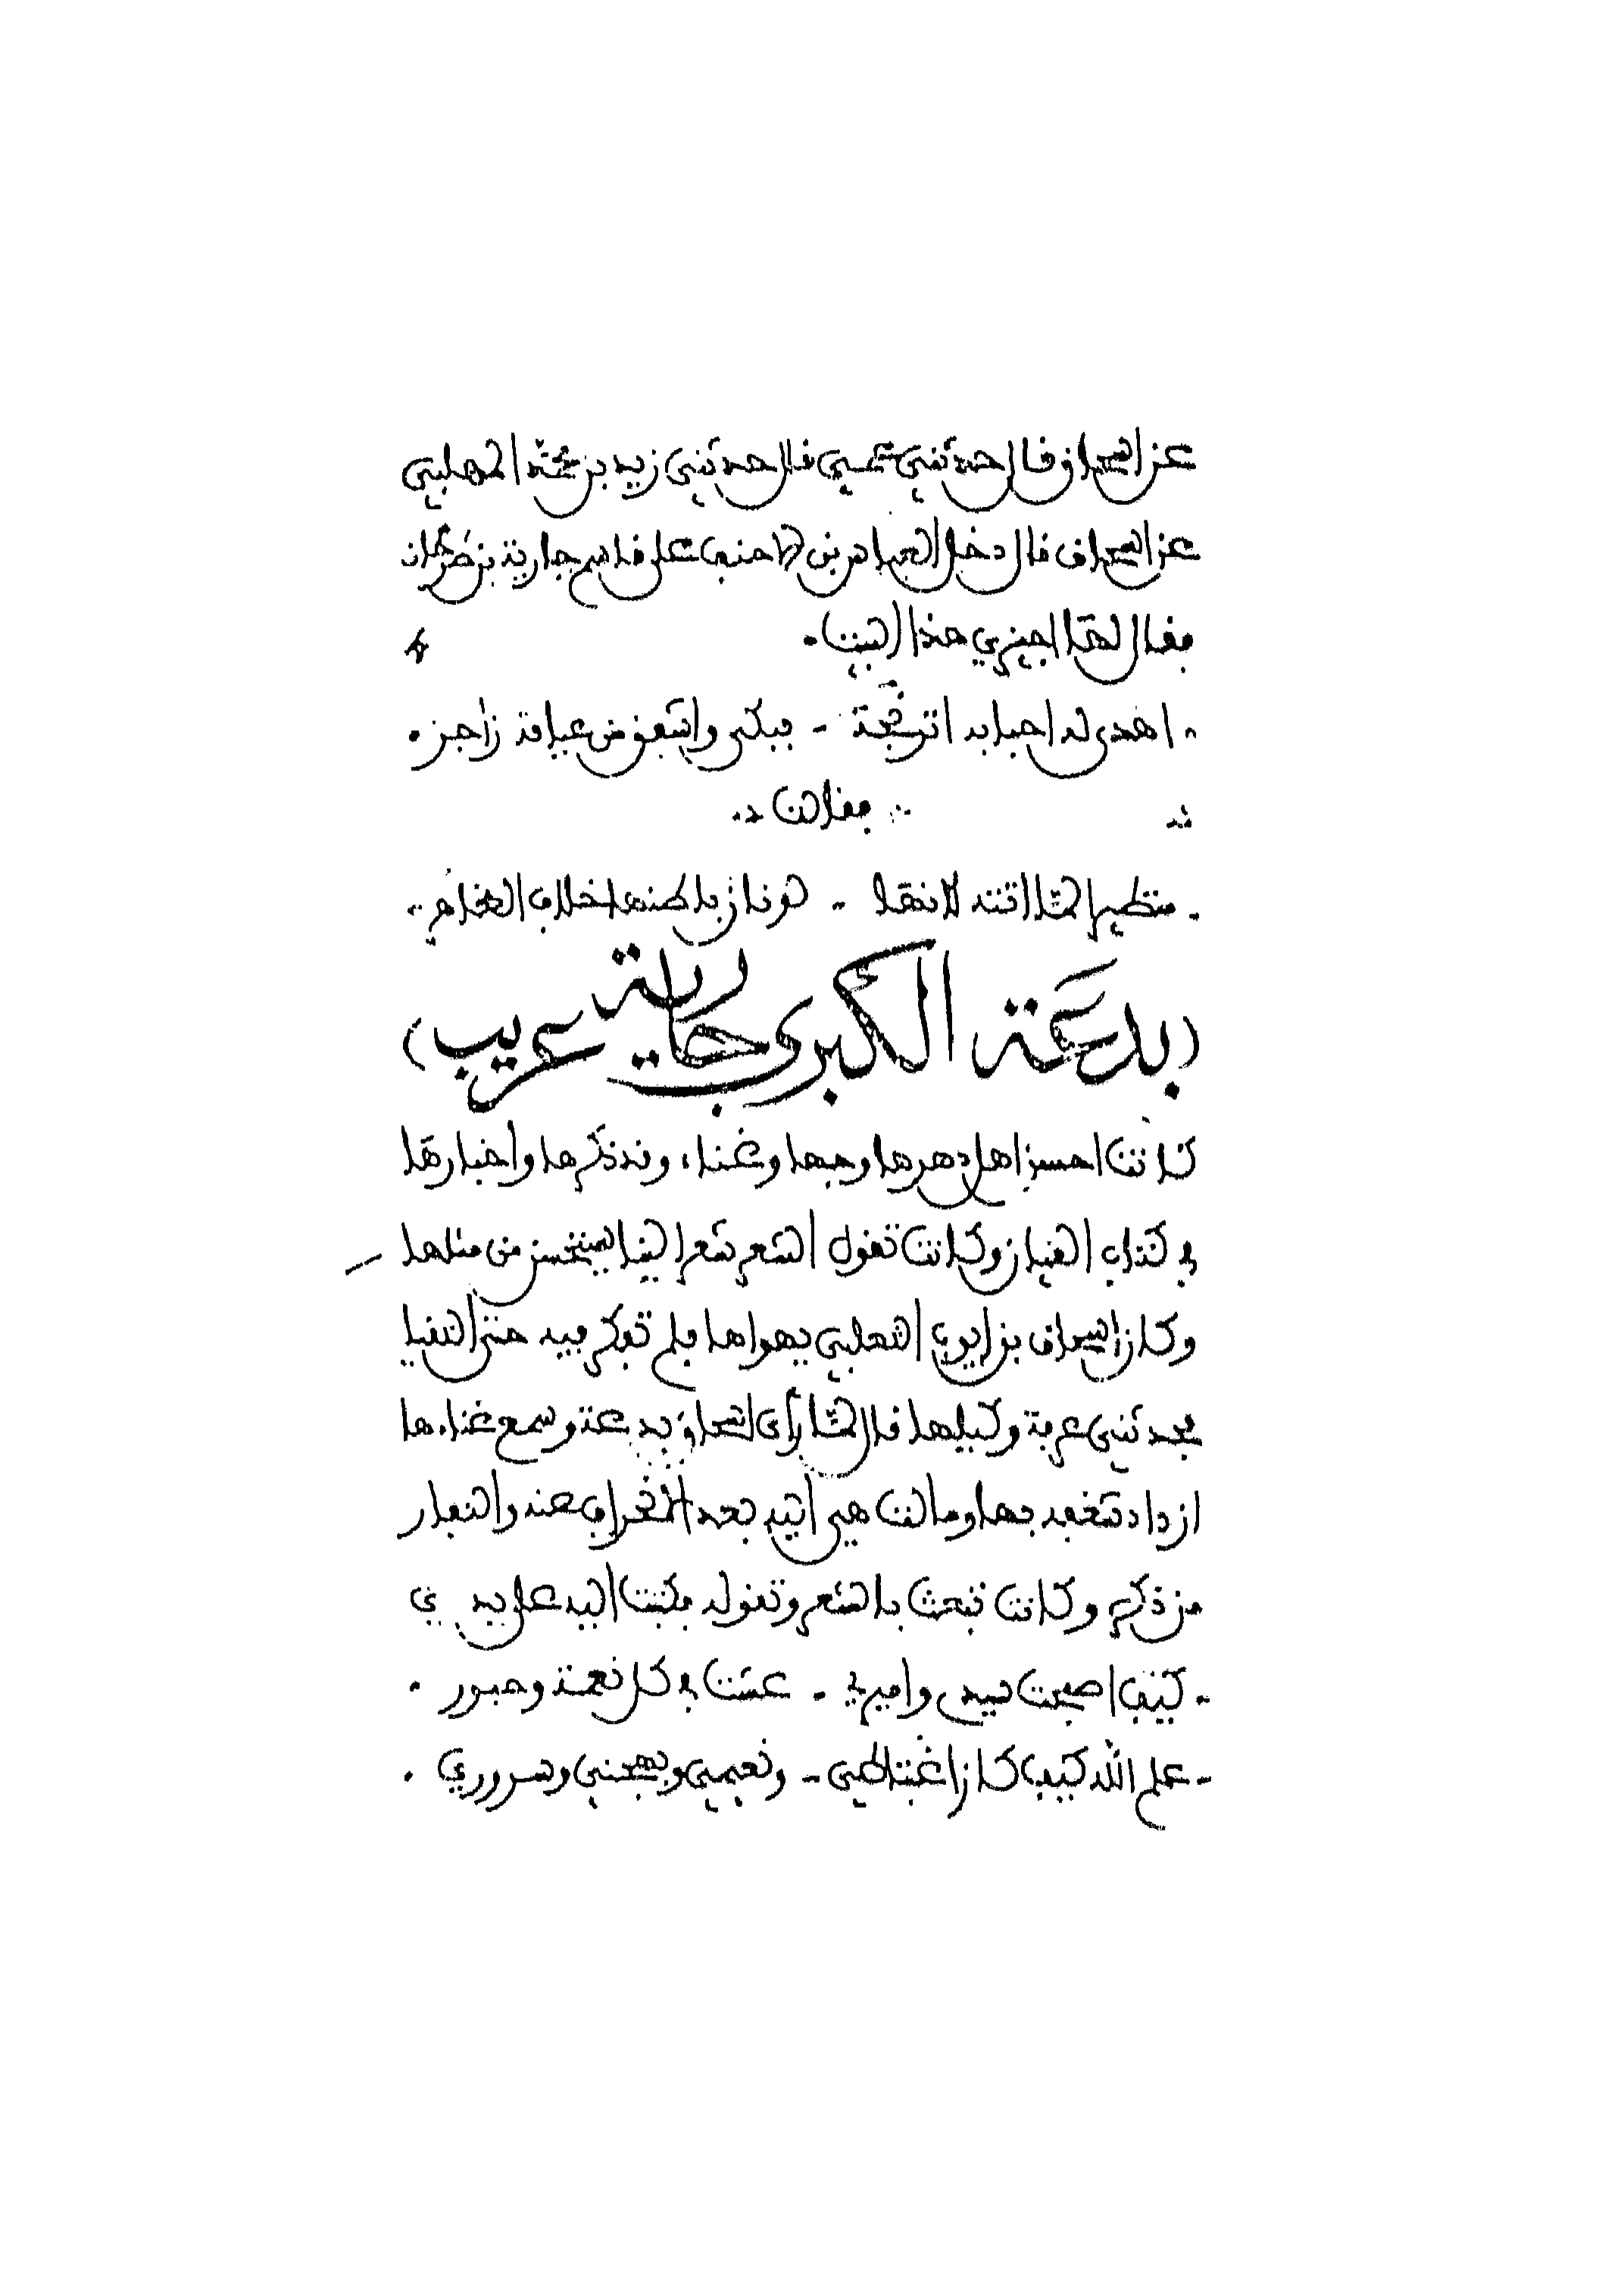 عن اسحاق قال حدثني عمي قال حدثني زيد بن محمد المهلبي
عن اسحاق قال دخل العباس بن الاحنف على قاسم جارية بن طرخان
فقال لها اجيزي هذا البيت
اهدى له احبابه اترجة - فبكى واشفق من عيافة زاجر
فقالت
متطيرا لما اتته لانها - لونان باطنها خلاف الظاهر
(بدعة الكبرى جارية عريب)
كانت احسن اهل دهرها وجها وغناء وقد ذكرها واخبارها
في كتاب القيان وكانت تقول الشعر شعرا لينا يستحسن من مثلها
وكان اسحاق بن ايوب التغلبي يهواها فلم تفكر فيه حتى التقيا
فحدثني عرفة وكيلها قال لما رأى اسحاق بدعة وسمع غناءها
ازداد شغفه بها ومالت هي اليه بعد انحراف عنه والنفار
من ذكره وكانت تبعث بالشعر وتقوله فكتبت اليه على يدي
كيف اصبحت سيدي واميري - عشت في كل نعمة وحبور
علم الله كيف كان اغتباطي - ونعيمي وبهجتي وسروري